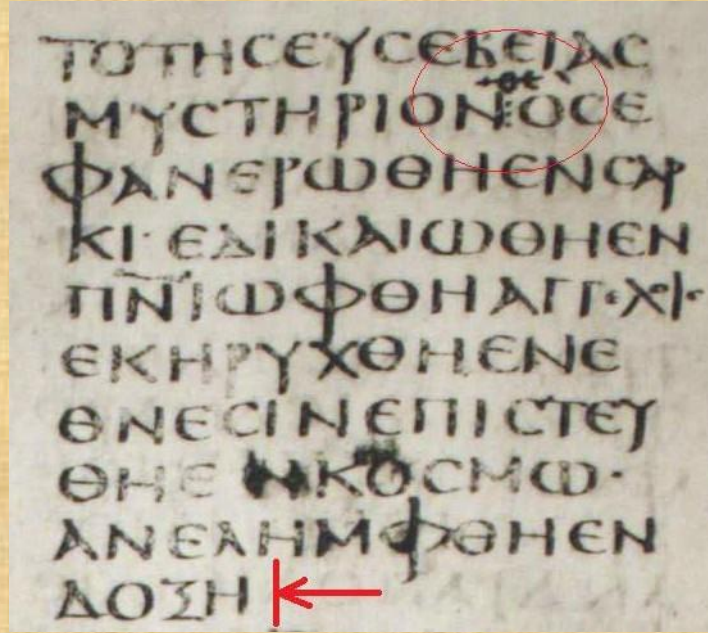 ΤΟΤΗϹΕΥϹΕΒΕΙΑϹ
θε
ΜΥϹΤΗΡΙΟΝΟϹΕ
ΦΑΝΕΡΩΘΗΕΝϹΑΡ
ΚΙ·ΕΔΙΚΑΙΩΘΗΕΝ
ΠΝΙΩΦΘΗΑΓΓ·ΧΙ·
ΕΚΗΡΥΧΘΗΕΝΕ
ΘΝΕϹΙΝΕΠΙϹΤΕΥ
ΘΗΕΝΚΟϹΜΩ·
ΑΝΕΛΗΜΦΘΗΕΝ
ΔΟΞΗ